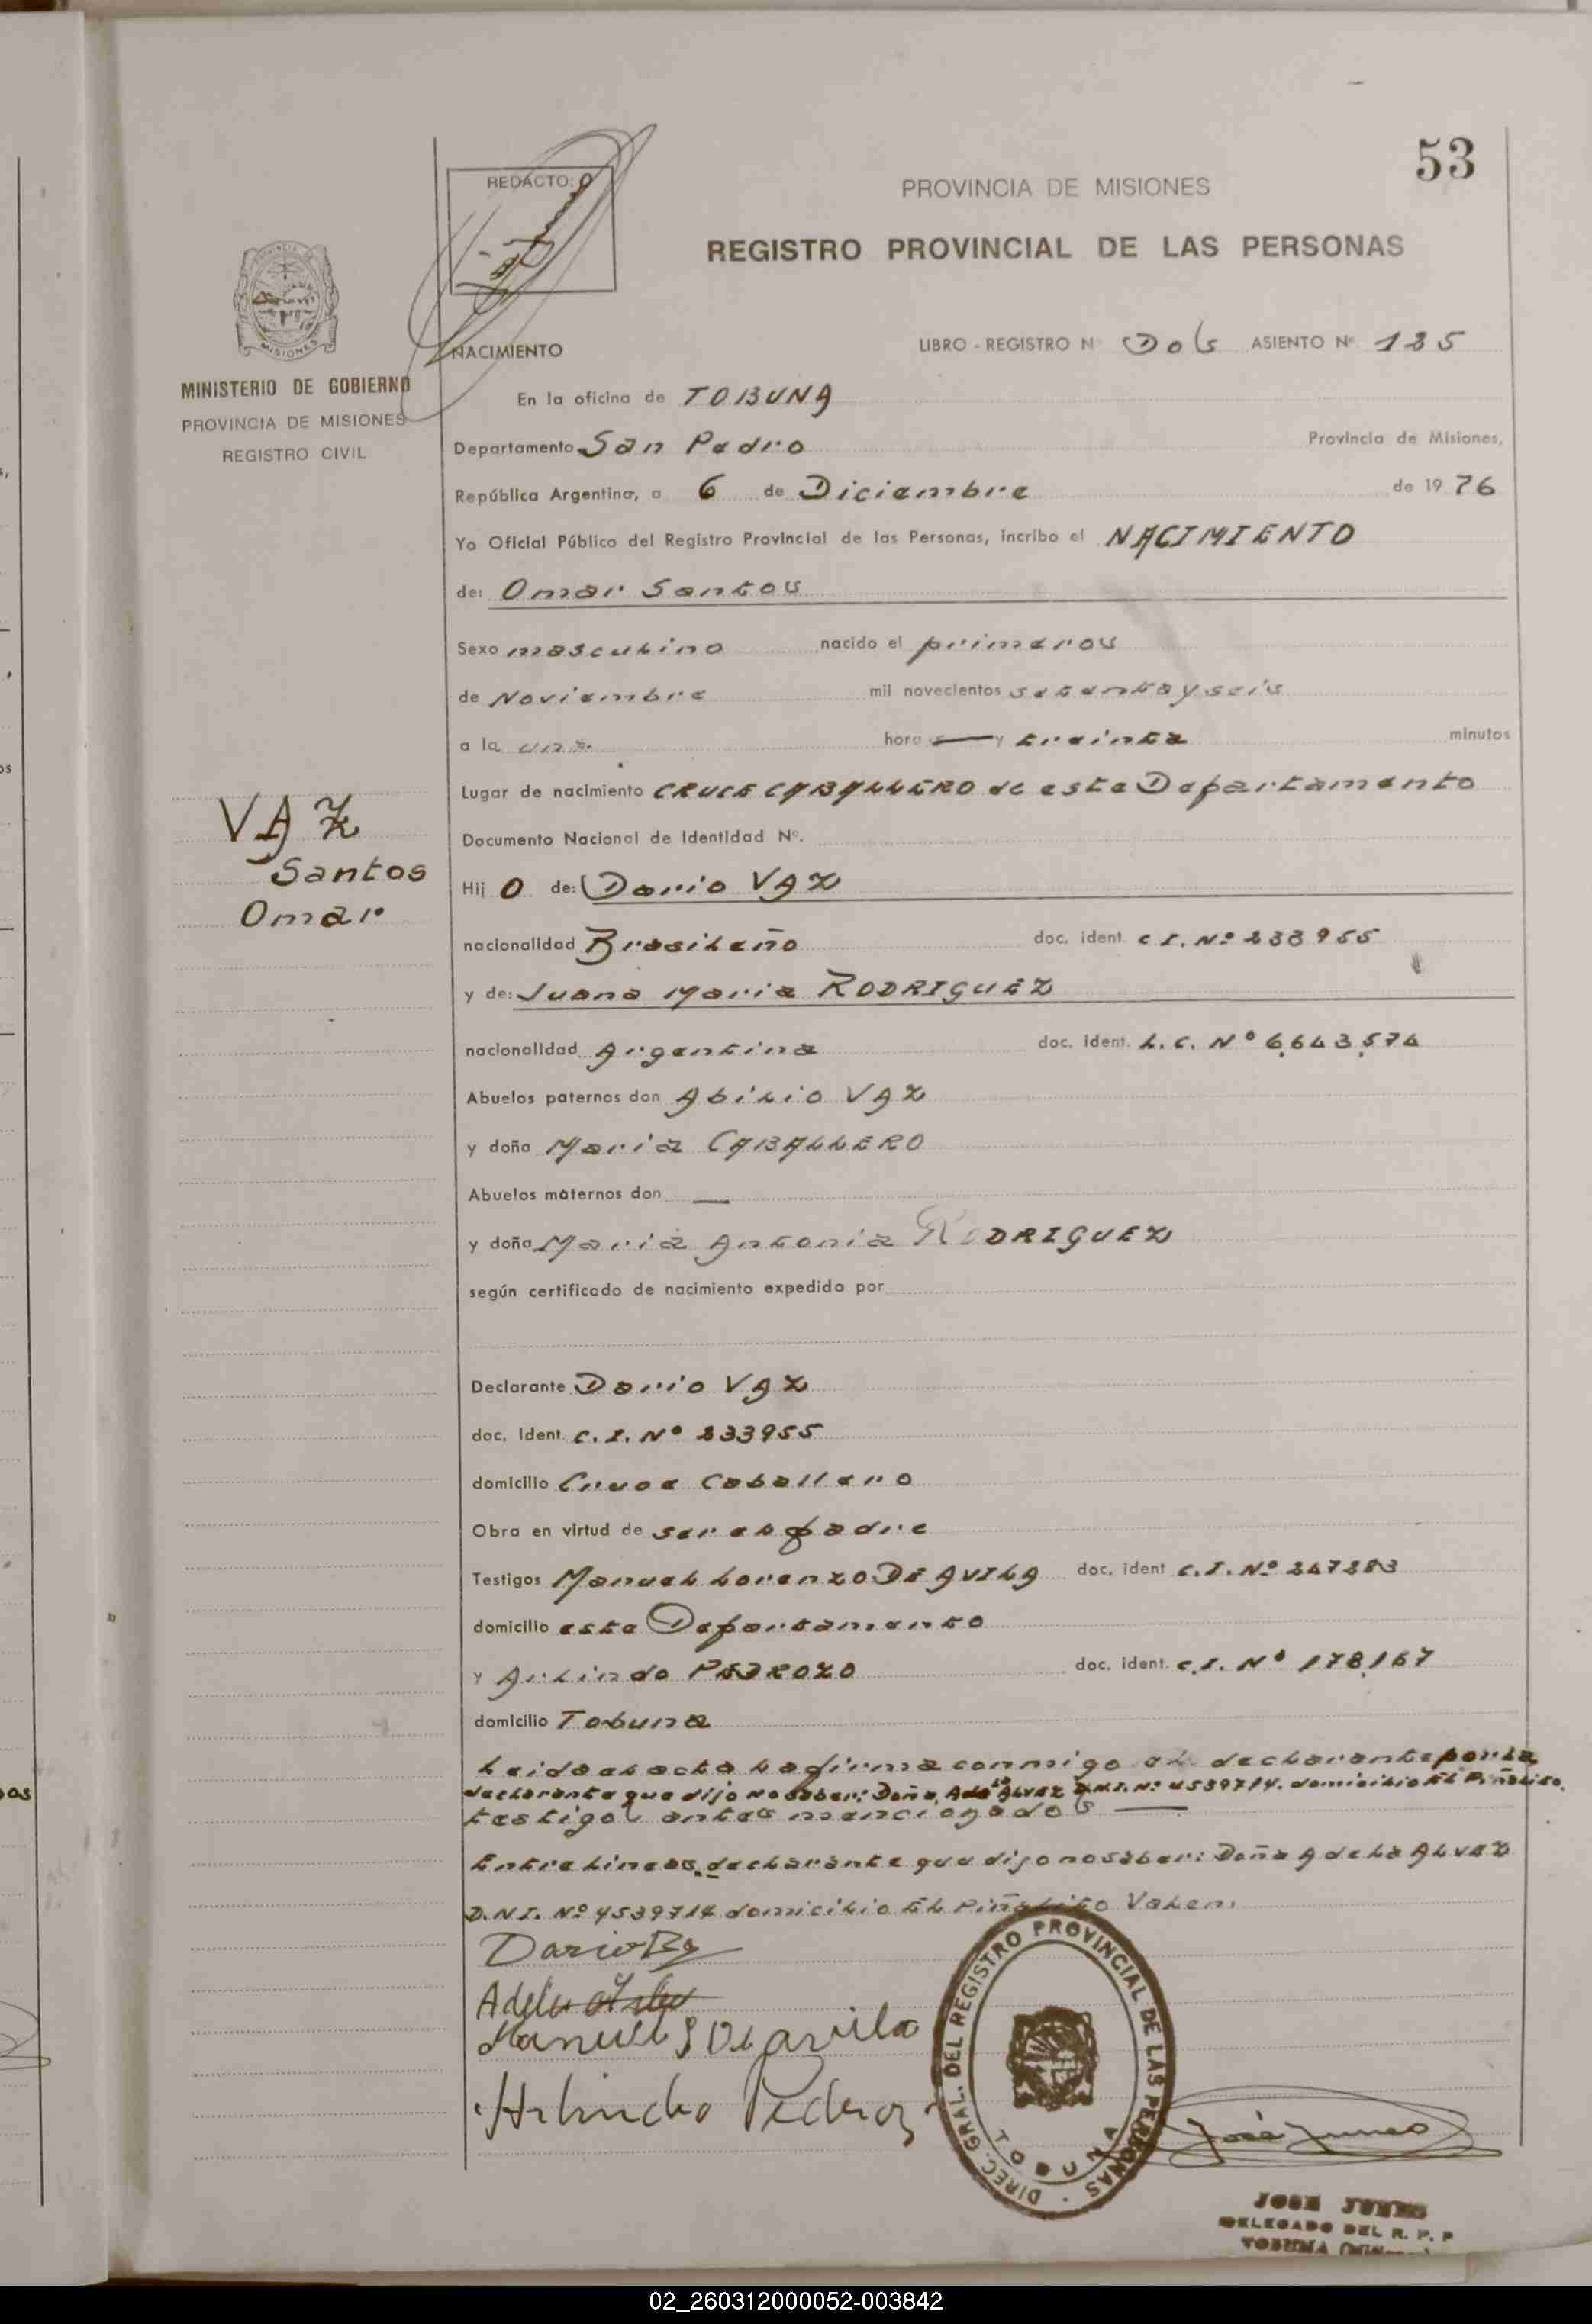 53
REDACTO:
PROVINCIA DE MISIONES
REGISTRO PROVINCIAL DE LAS PERSONAS
MISIONES
MINISTERIO DE GOBIERNO
PROVINCIA DE MISIONES
REGISTRO CIVIL
NACIMIENTO
LIBRO - REGISTRO Nº Dos ASIENTO Nº 185
En la oficina de TOBUNA
Departamento San Pedro Provincia de Misiones,
República Argentina, a 6 de Diciembre de 1976
Yo Oficial Público del Registro Provincial de las Personas, incribo el NACIMIENTO
de: Omar Santos
Sexo masculino nacido el primeros
de Noviembre mil novecientos setenta y seis
a la una hora y treinta minutos
Lugar de nacimiento CRUCE CABALLERO de este Departamento
VAZ
Santos
Omar
Documento Nacional de Identidad Nº.
Hij o de: Dario VAZ
nacionalidad Brasileño doc. ident. C.I. Nº 233955
y de: Juana Maria RODRIGUEZ
nacionalidad Argentina doc. ident. L.C. Nº 6.643.574
Abuelos paternos don Abilio VAZ
y doña Maria CABALLERO
Abuelos maternos don —
y doña Maria Antonia RODRIGUEZ
según certificado de nacimiento expedido por
Declarante Dario VAZ
doc. Ident. C.I. Nº 233955
domicilio Cruce Caballero
Obra en virtud de ser el padre
Testigos Manuel Lorenzo DE AVILA doc. ident C.I. Nº 247283
domicilio este Departamento
y Arlindo PEDROZO doc. ident. C.I. Nº 178.167
domicilio Tobuna
Leida el acta la firma conmigo el declarante por la
declarante que dijo no saber: Doña Adela ALVEZ D.N.I. Nº 4539714. domicilio El Piñalito.
testigos antes mencionados —
Entre lineas declarante que dijo no saber: Doña Adela ALVEZ
D.N.I. Nº 4539714 domicilio El Piñalito Valen.
Dario
Adela
Manuel L De avila
Arlindo Pedroz
DIREC. GRAL. DEL REGISTRO PROVINCIAL DE LAS PERSONAS
TOBUNA
José Junes
JOSE JUNES
DELEGADO DEL R. P. P
TOBUNA
02_260312000052-003842